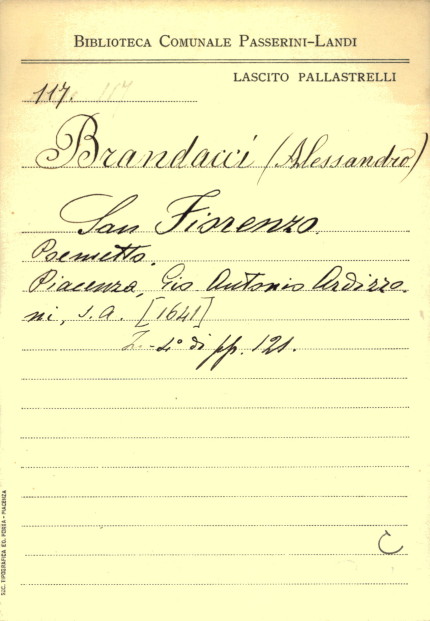 BIBLIOTECA COMUNALE PASSERINI-LANDI
LASCITO PALLASTRELLI
117. 117
Brandacci (Alessandro)
San Fiorenzo.
Poemetto.
Piacenza, Gio. Antonio Ardizzo-
ni, s.a. [1641]
4° di pp. 121.
C
SOC. TIPOGRAFICA ED. PORTA - PIACENZA